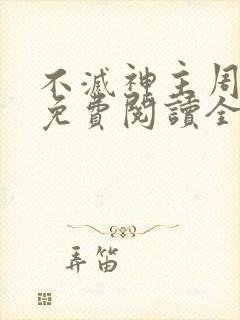 不滅神主周
免費閱讀全
弄笛